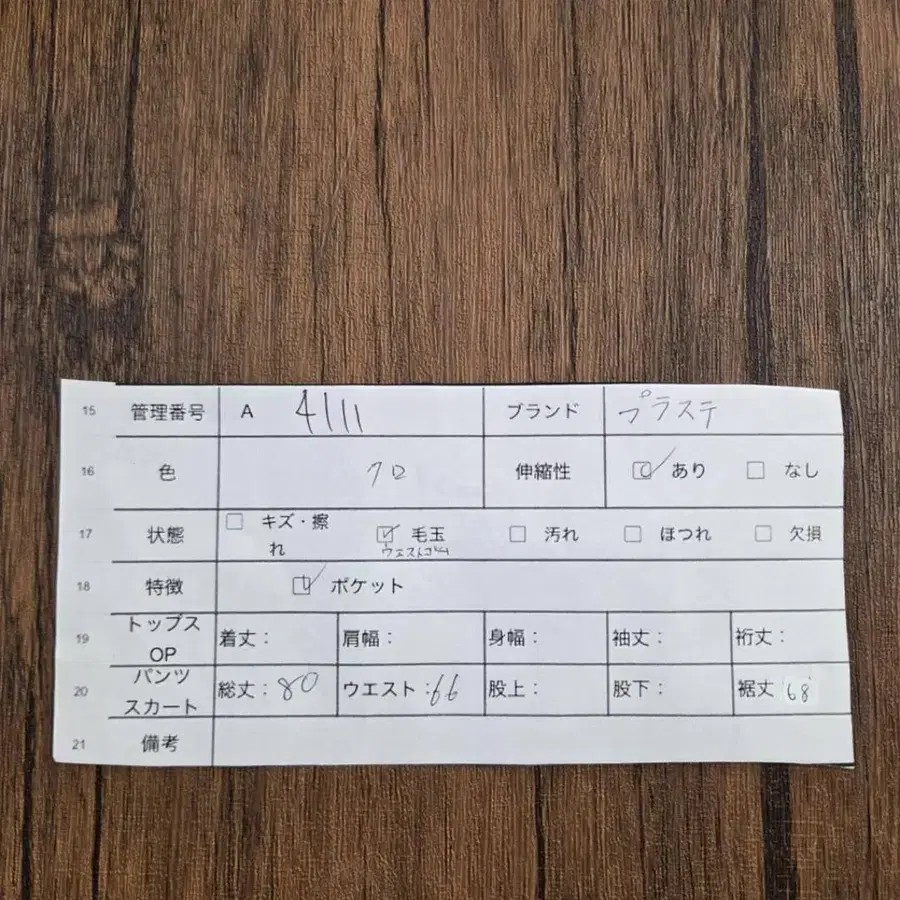 15 管理番号 A 4111 ブランド プラステ
16 色 クロ 伸縮性 ☑ あり ☐ なし
17 状態 ☐ キズ・擦れ ☑ 毛玉 ☐ 汚れ ☐ ほつれ ☐ 欠損
ウエストゴム
18 特徴 ☑ ポケット
19 トップス OP 着丈： 肩幅： 身幅： 袖丈： 裄丈：
20 パンツ スカート 総丈：80 ウエスト：66 股上： 股下： 裾丈 68
21 備考